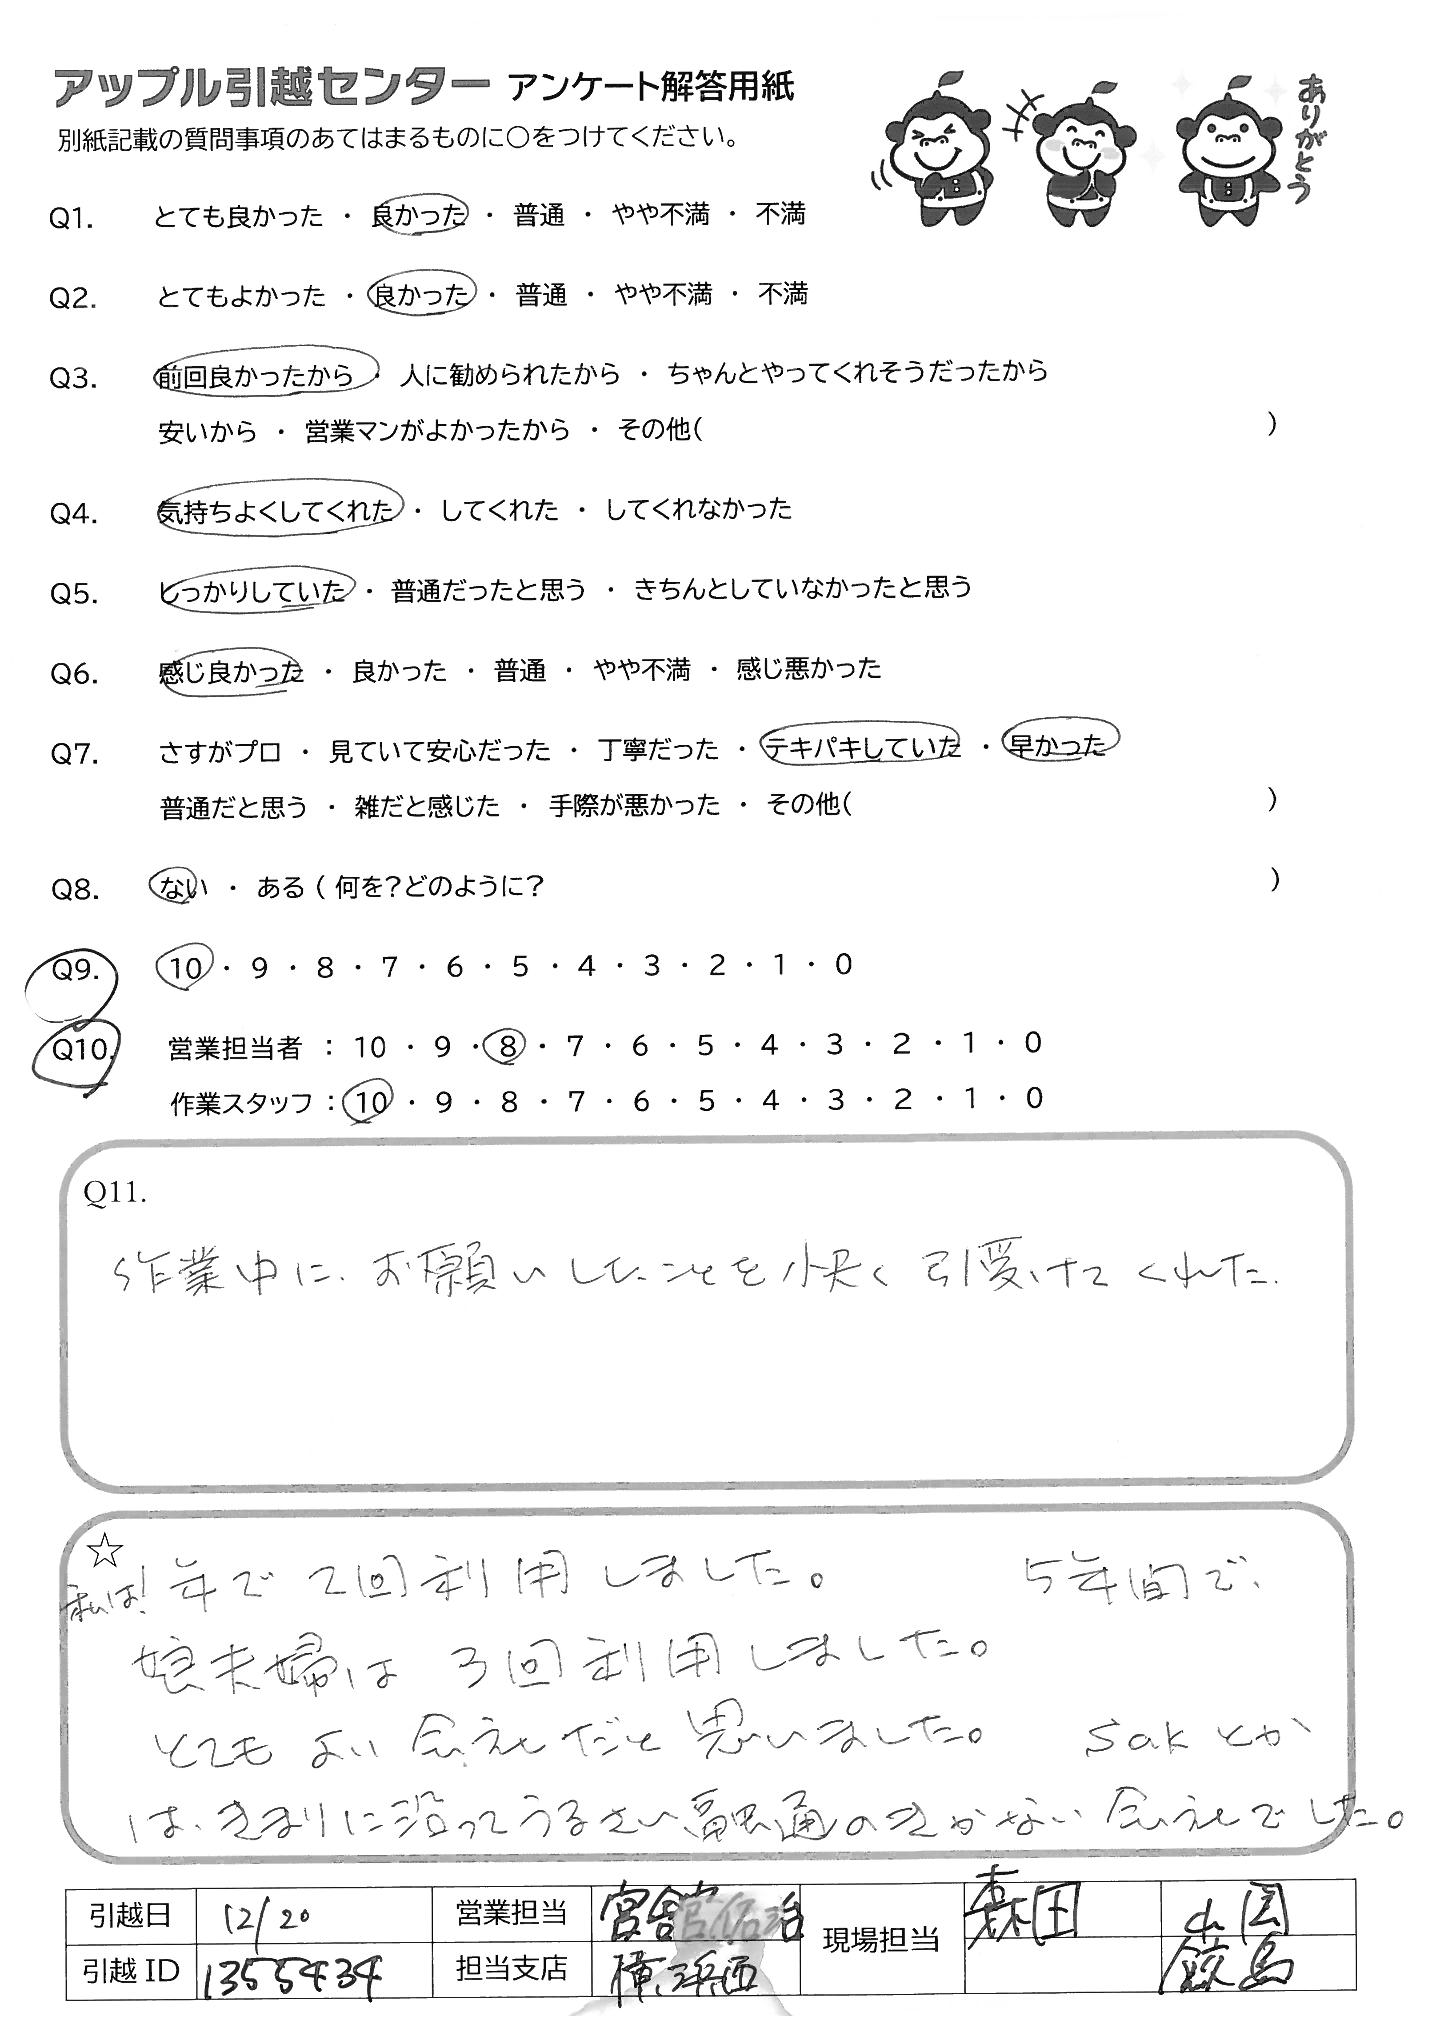 アップル引越センター アンケート解答用紙
別紙記載の質問事項のあてはまるものに○をつけてください。
ありがとう
Q1. とても良かった ・ 良かった ・ 普通 ・ やや不満 ・ 不満
Q2. とてもよかった ・ 良かった ・ 普通 ・ やや不満 ・ 不満
Q3. 前回良かったから ・ 人に勧められたから ・ ちゃんとやってくれそうだったから
安いから ・ 営業マンがよかったから ・ その他( )
Q4. 気持ちよくしてくれた ・ してくれた ・ してくれなかった
Q5. しっかりしていた ・ 普通だったと思う ・ きちんとしていなかったと思う
Q6. 感じ良かった ・ 良かった ・ 普通 ・ やや不満 ・ 感じ悪かった
Q7. さすがプロ ・ 見ていて安心だった ・ 丁寧だった ・ テキパキしていた ・ 早かった
普通だと思う ・ 雑だと感じた ・ 手際が悪かった ・ その他( )
Q8. ない ・ ある ( 何を?どのように? )
Q9. 10 ・ 9 ・ 8 ・ 7 ・ 6 ・ 5 ・ 4 ・ 3 ・ 2 ・ 1 ・ 0
Q10. 営業担当者 : 10 ・ 9 ・ 8 ・ 7 ・ 6 ・ 5 ・ 4 ・ 3 ・ 2 ・ 1 ・ 0
作業スタッフ : 10 ・ 9 ・ 8 ・ 7 ・ 6 ・ 5 ・ 4 ・ 3 ・ 2 ・ 1 ・ 0
Q11.
作業中に、お願いしたことを快く引受けてくれた.
☆
私は1年で2回利用しました。 5年間で、
娘夫婦は 3回利用しました。
とても よい 会社だと思いました。 Sakとか
は、きまりに沿ってうるさい融通のきかない会社でした。
引越日 12/20 営業担当 現場担当 森田 小国
引越ID 1355434 担当支店 横浜西 鮫島